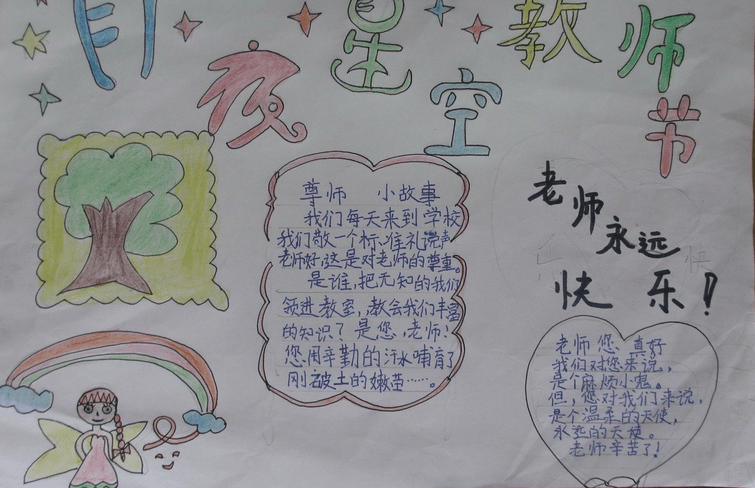 月夜星空教师节
尊师 小故事
我们每天来到学校
我们敬一个标准礼说声
老师好,这是对老师的尊重。
是谁,把无知的我们
领进教室,教会我们丰富
的知识?是您,老师!
您用辛勤的汗水哺育了
刚破土的嫩苗……。
老师永远
快乐!
老师您 真好
我们对您来说,
是个麻烦小鬼。
但,您对我们来说,
是个温柔的天使,
永远的天使。
老师辛苦了!